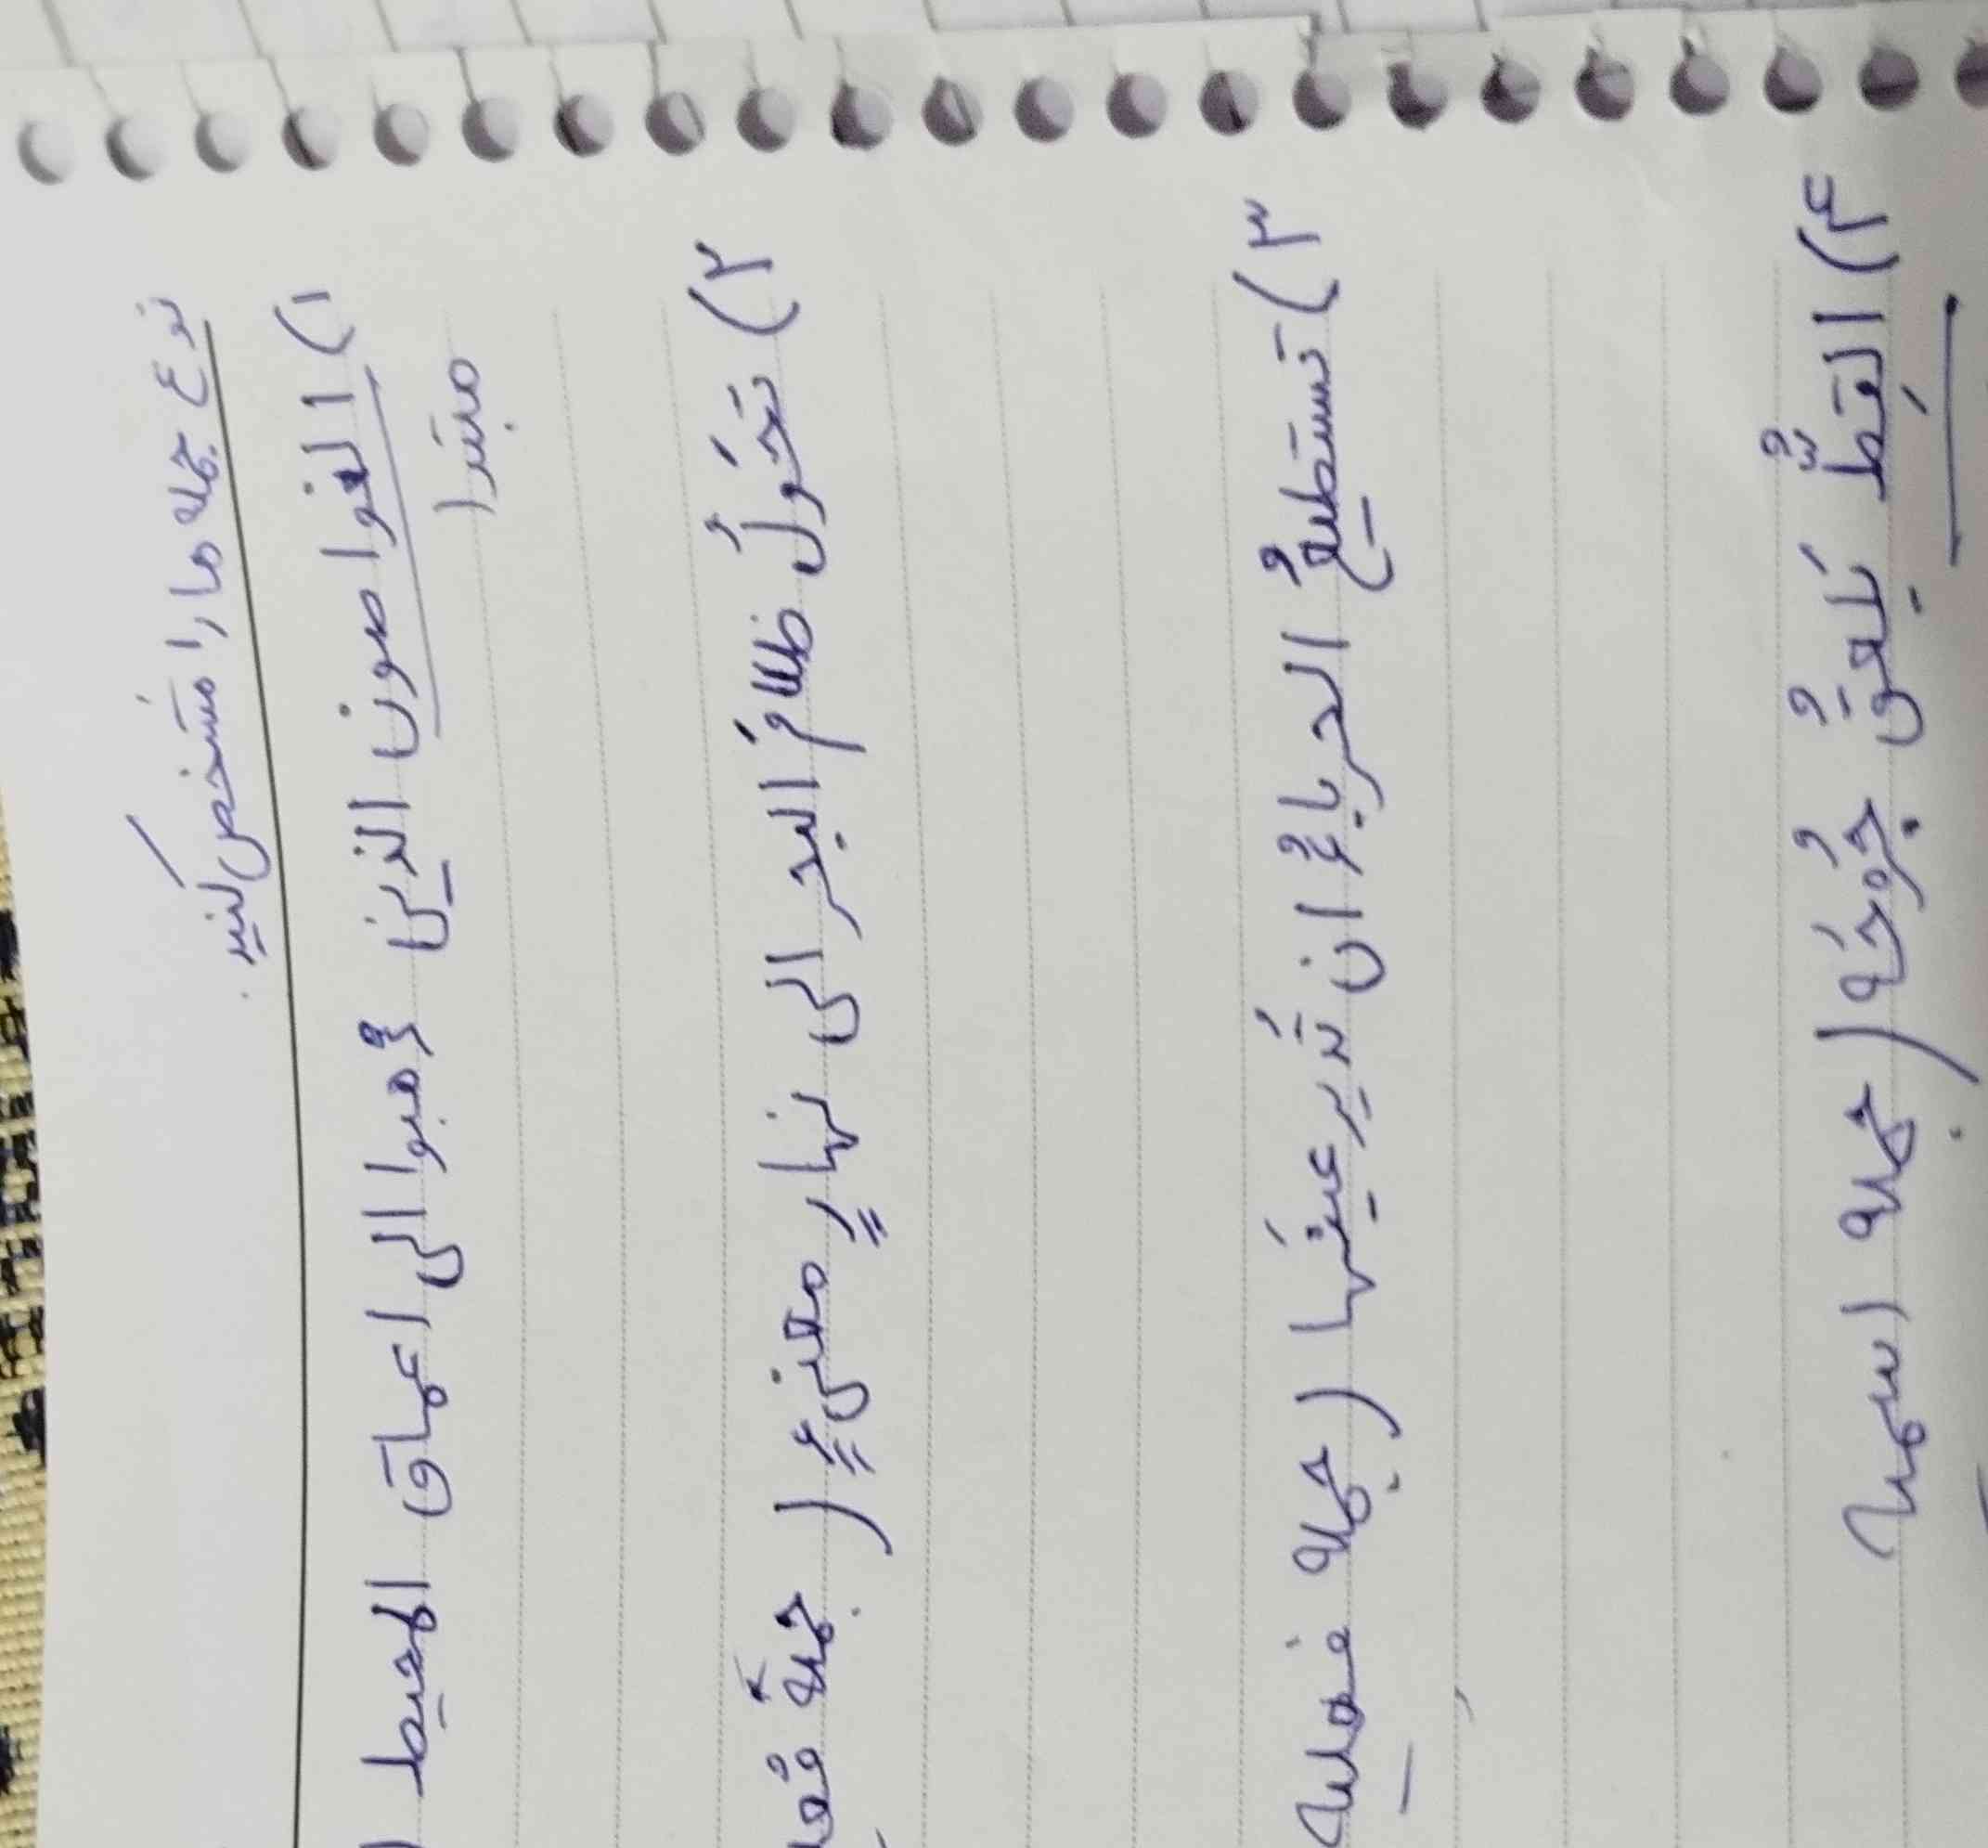 نوع جمله ها را مشخص کنید.
۱) الغواصون الذین ذهبوا الی اعماق المحیط (
مبتدا
۲) تَحَولُ ظلامَ البحر الی نهارٍ مضیءٍ ( جملهٔ فعل
۳) تَستَطیعُ الحرباءُ ان تُدیرَ عینَها ( جمله فعلیه
۴) القِطُّ یَلعَقُ جُرحَه ( جمله اسمیه